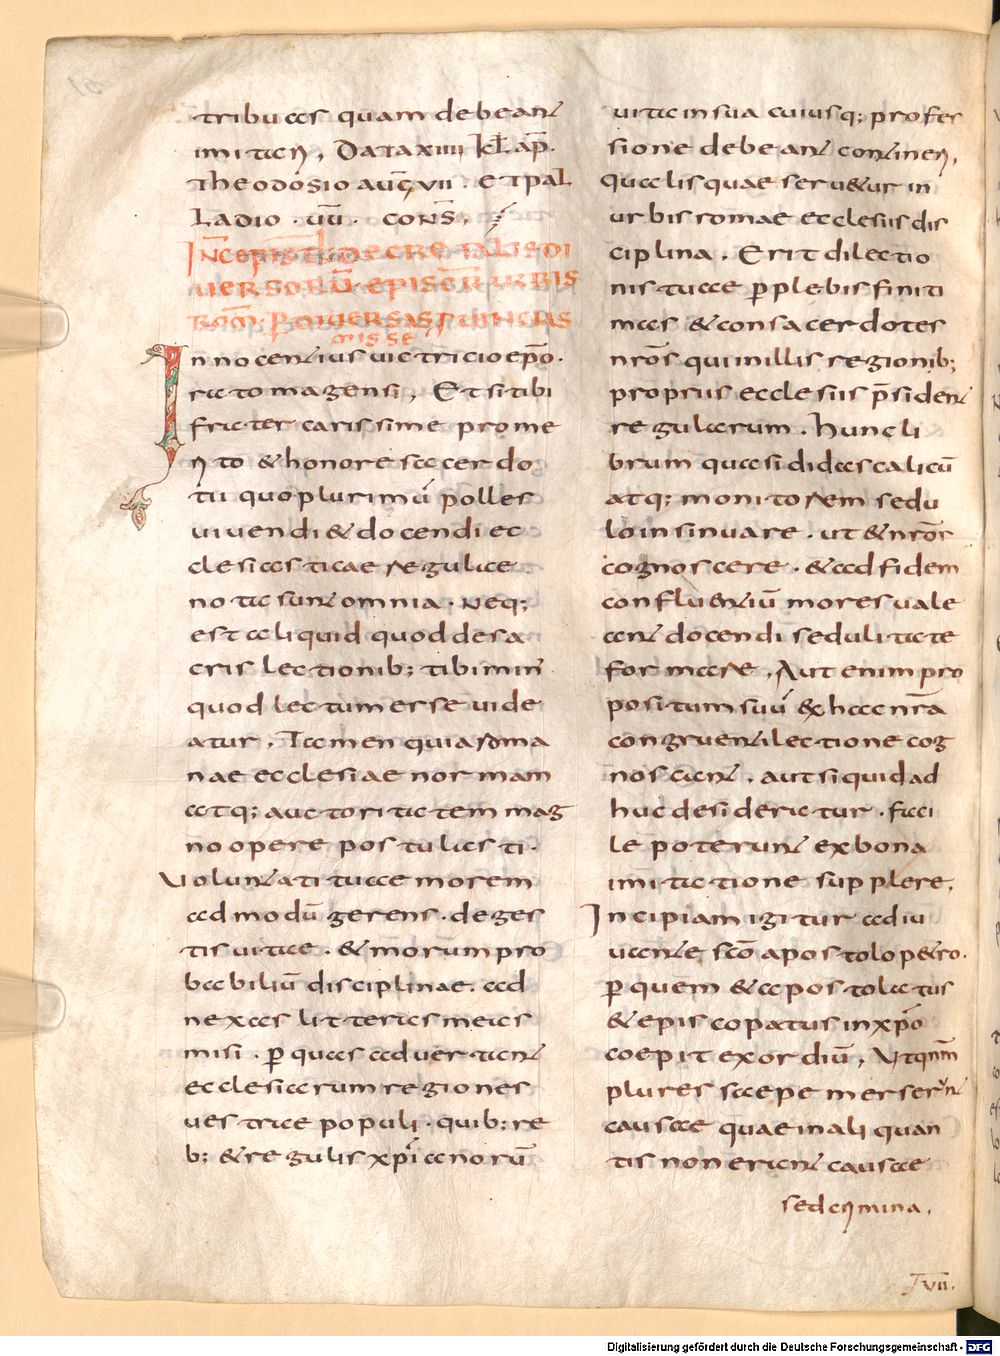 tribuas quam debeant
imitari, Data xiiii kł ap̄.
theodosio aug̅ vii et pal
ladio · uū · cons̄,
Inc̄ epist̄ decretalis di
uersorū episcor̄ urbis
ꝑ diuersas
misse
Innocentius uictricio ep̄o.
rotomagensi, Et si tibi
frater carissime pro me
rito & honore sacerdo
tii quo plurimū polles
uiuendi & docendi ec
clesiasticae regulae
nota sunt omnia. neq;
est aliquid quod de sa
cris lectionib; tibi min̄
quod lectum esse uide
atur, Tamen quia roma
nae ecclesiae normam
atq; auctoritatem mag
no opere postulasti.
Voluntati tuae morem
admodū gerens. deges
tis uitae. & morum pro
babiliū disciplinae. ad
nexas litteras meas
misi. ꝑ quas aduertant
ecclesiarum regiones
uestrae populi. quib; re
b; & regulis xp̄ianorū
uitae in sua cuiusq; profes
sione debeant contineri,
quaelis quae seruetur in
urbis romae ecclesiis dis
ciplina, Erit dilectio
nis tuae ꝑ plebis finiti
mas & consacerdotes
nr̄os qui in illis regionib;
propriis ecclesiis p̄sident
regularum. hunc li
brum quasi didascalicū
atq; monitorem sedu
lo insinuare. ut & nr̄os
cognoscere. & ad fidem
confluentiū mores uale
ant docendi sedulitate
formare, Aut enim pro
positum suū ex hac nr̄a
congruenti lectione cog
noscant, aut si quid ad
huc desideratur. faci
le poterunt ex bona
imitatione supplere,
Incipiam igitur adiu
uante sc̄o apostolo petro.
ꝑ quem & apostolatus
& episcopatus in xp̄o
coepit exordiū, Ut qm̄
plures saepe emerserunt
causae quae in aliquan
tis non erant causae
sed crimina,
vii.
Digitalisierung gefördert durch die Deutsche Forschungsgemeinschaft - DFG